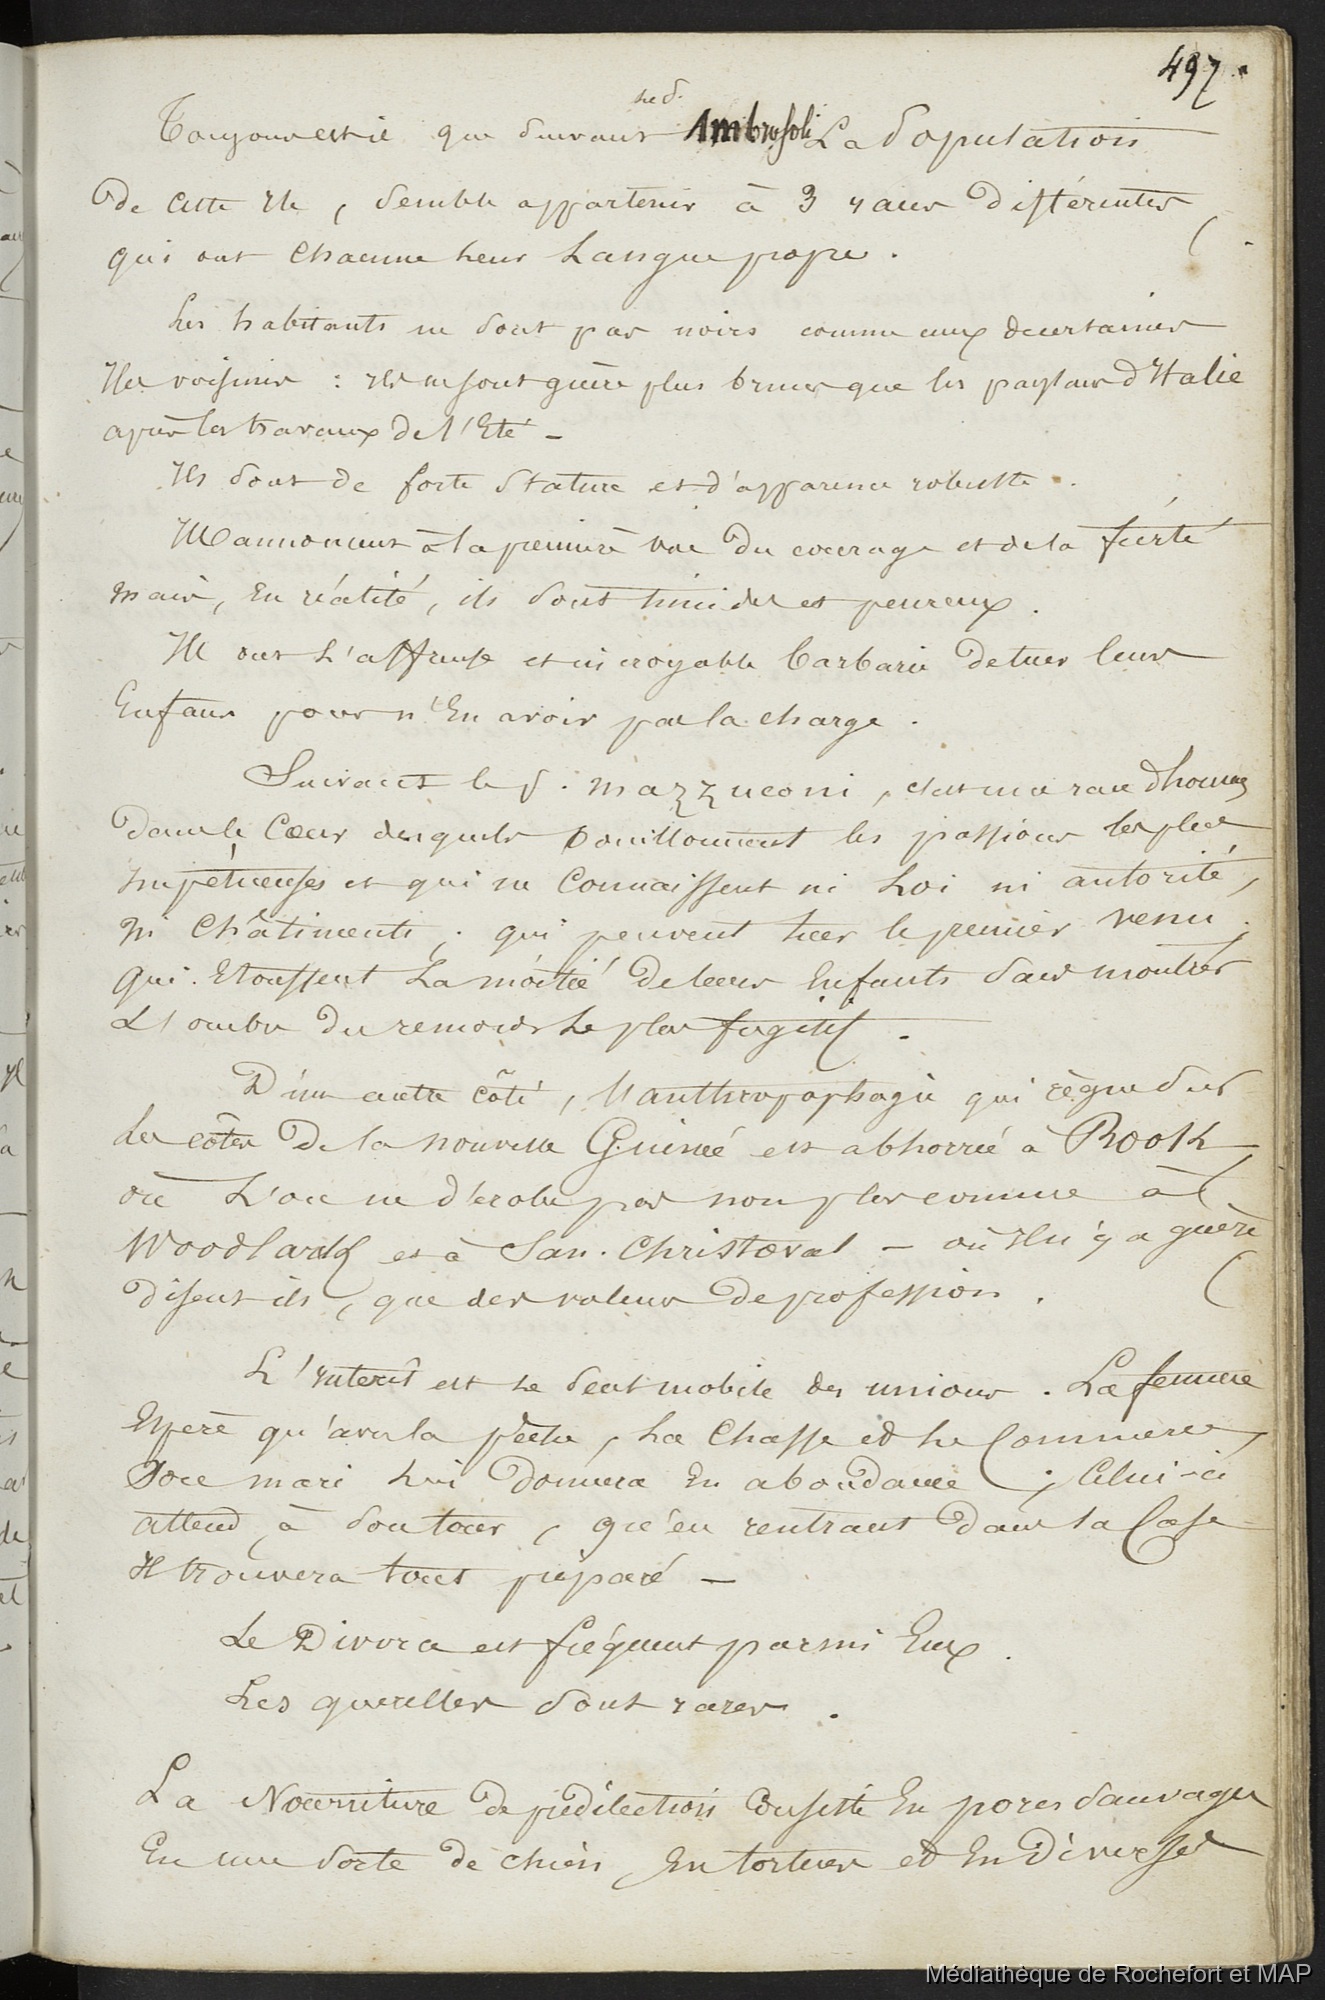 497.
le d.
Toujours est-il que suivant Ambrosoli La Population
De cette Ile, semble appartenir à 3 races Différentes
qui ont Chacune leur Langue propre.
Les habitants ne sont pas noirs comme ceux de certaines
Iles voisines : ils ne sont guère plus bruns que les paysans d'Italie
après les travaux De l'Eté -
Ils sont de forte stature et d'apparence robuste.
Ils annoncent à la première vue Du courage et de la fierté
mais, En réalité, ils sont timides et peureux.
Ils ont L'affreuse et incroyable barbarie De tuer leurs
Enfans pour n'En avoir pas la charge.
Suivant le p. Mazzuconi, c'est une race d'hommes
Dans le Coeur desquels bouillonnent les passions les plus
Impétueuses et qui ne Connaissent ni Loi ni autorité,
Ni Châtiments ; qui peuvent tuer le premier venu ;
qui Etouffent La moitié De leurs Enfants sans montrer
L'ombre Du remords Le plus fugitif.
D'un autre côté, l'anthropophagie qui règne sur
Les côtes De la nouvelle Guinée est abhorrée à Rook
où L'on ne dérobe pas non plus comme à
Woodlark et à San. Christoval - où Il n'y a guère
Disent-ils, que des voleurs De profession.
L'Interêt est Le seul mobile des unions. La femme
Espère qu'avec la pêche, La Chasse et Le Commerce,
Son mari Lui Donnera En abondance ; Celui-ci
attend à son tour, qu'en rentrant Dans la Case
Il trouvera tout préparé -
Le Divorce est fréquent parmi Eux.
Les querelles sont rares.
La Nourriture De prédilection Consiste En porcs sauvages
En une sorte De chien, En tortues et En Diverses
Médiathèque de Rochefort et MAP